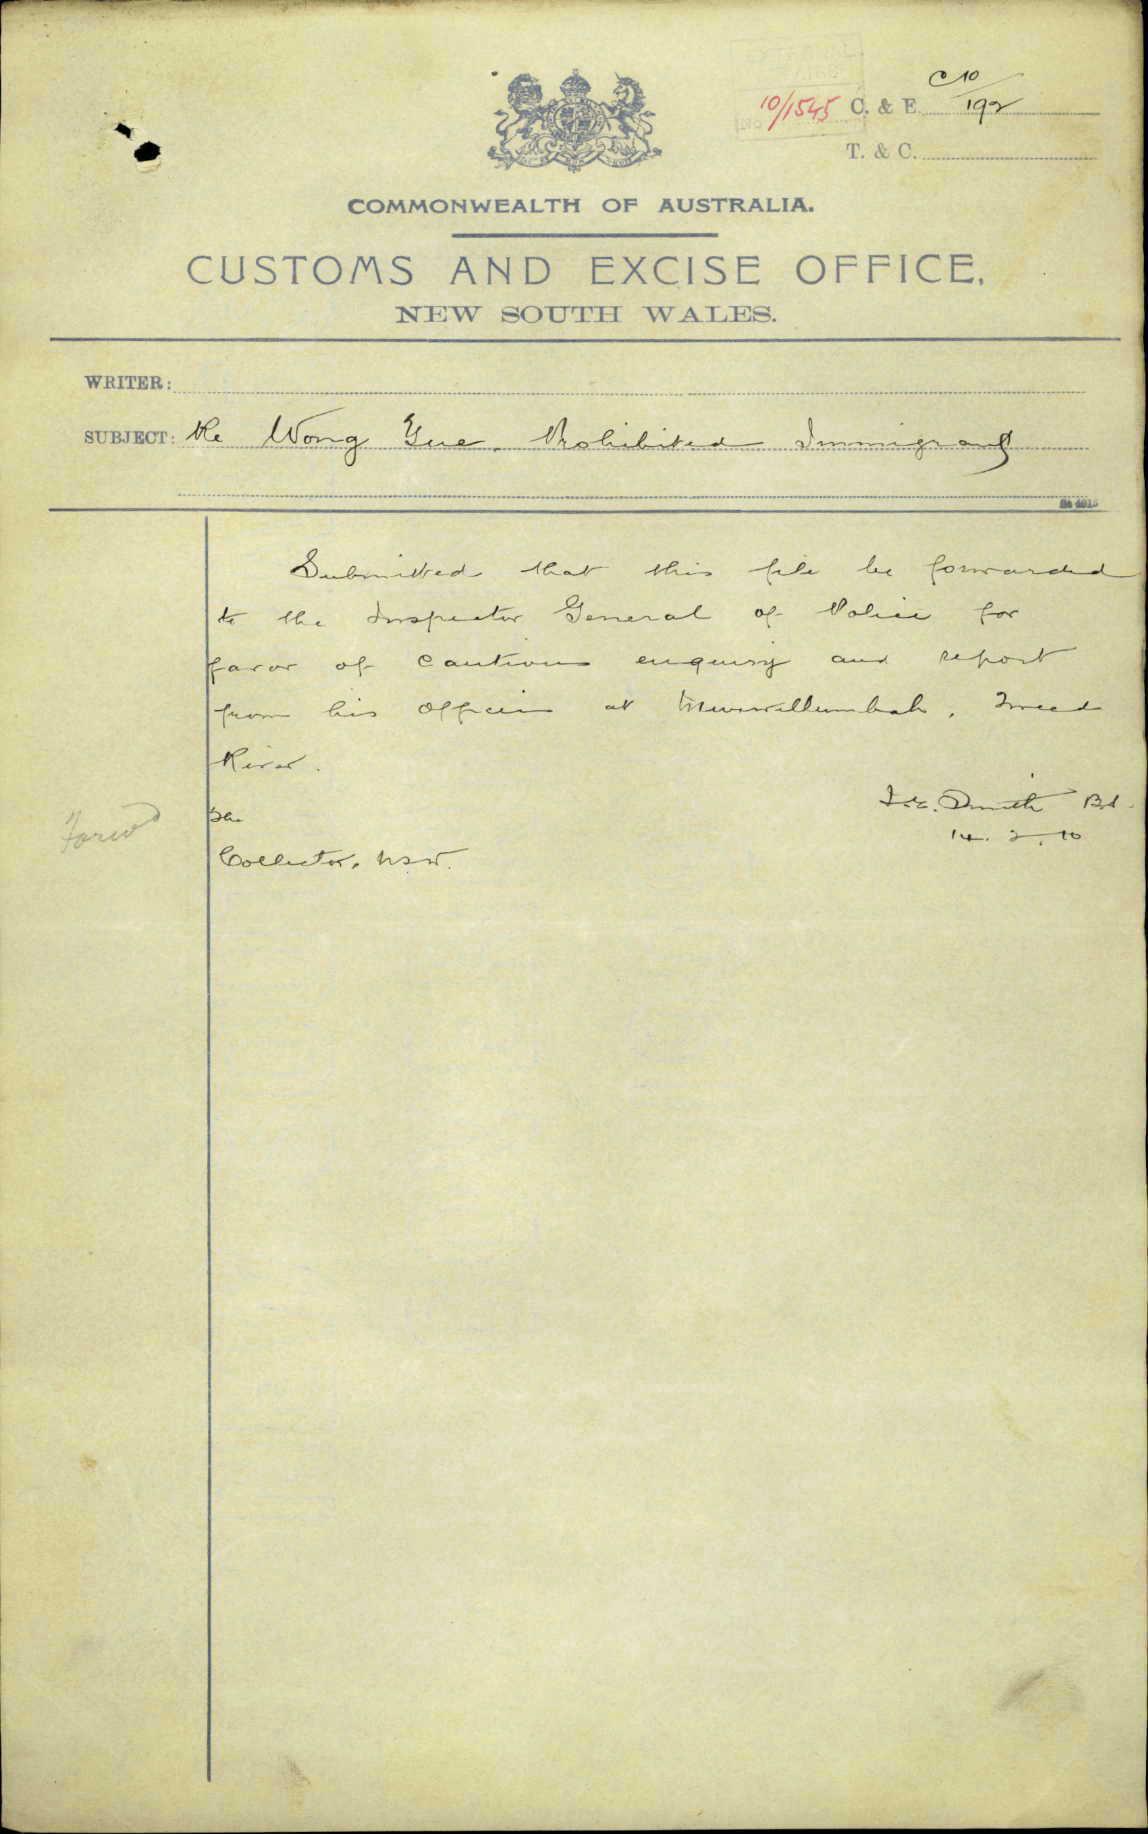 10/1545 C. & E. C10/192
T. & C.
COMMONWEALTH OF AUSTRALIA.
CUSTOMS AND EXCISE OFFICE,
NEW SOUTH WALES.
WRITER:
SUBJECT: Re Wong Gue, Prohibited Immigrant
Submitted that this file be forwarded
to the Inspector General of Police for
favor of cautious enquiry and report
from his Officer at Murwillumbah, Tweed
River.
The
Collector, NSW.
Smith
14.2.10
Forwd